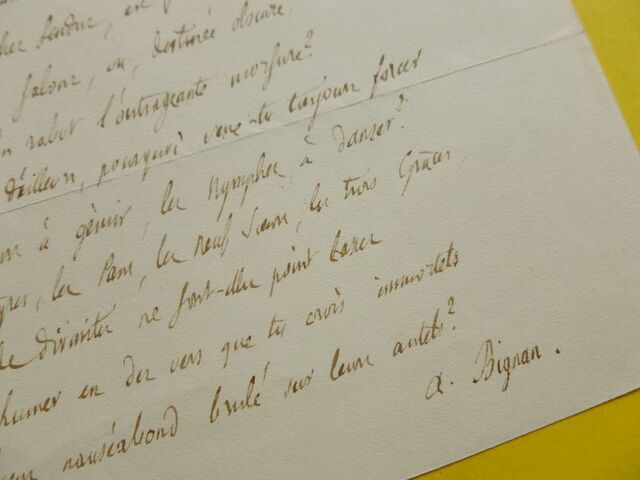 salons, ou, destinée obscure,
rabot l'outrageante morsure?
D'ailleurs, pourquoi veux-tu toujours forcer
à gémir, les Nymphes à danser?
les Pans, les neuf Sœurs, les trois Grâces,
divinités ne sont-elles point lasses
humer en des vers que tu crois immortels
nauséabond brulé sur leurs autels?
A. Bignan.